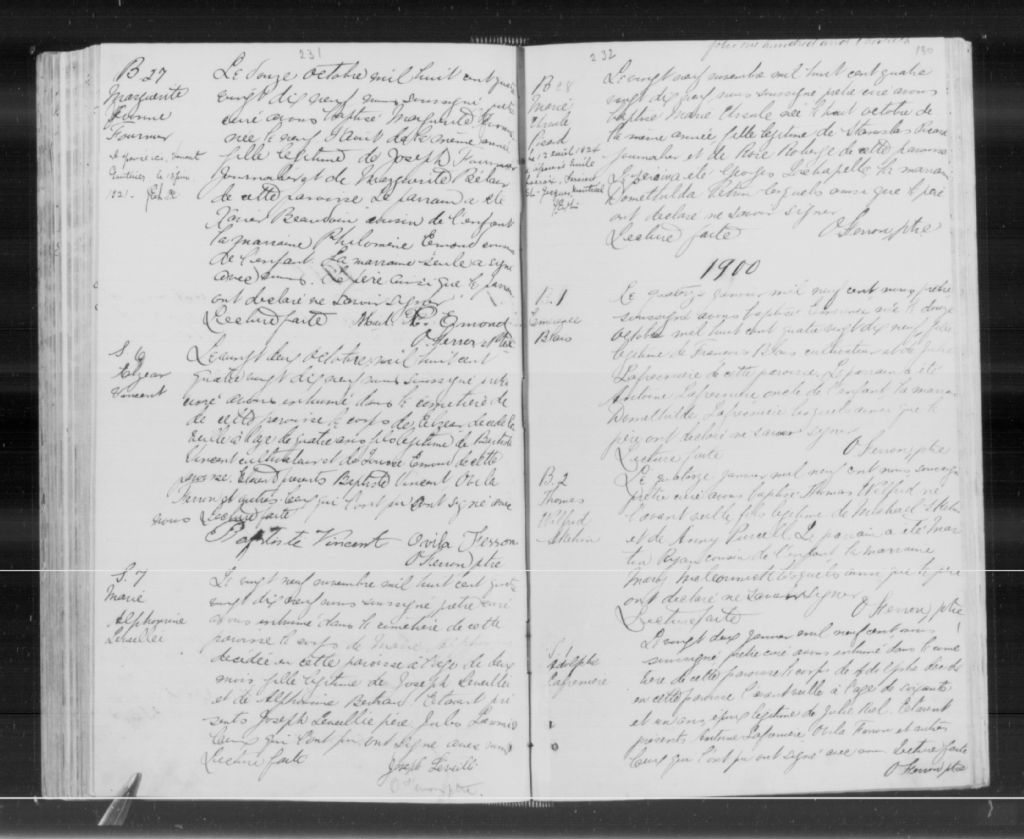 231
B 27
Marguerite
Fournier
Le douze octobre mil huit cent quatre
vingt dix neuf nous soussigné prêtre
curé avons baptisé Marguerite
née le neuf d'août de la même année
fille légitime de Joseph Fournier
journalier et de Marguerite Bélair
de cette paroisse. Le parrain a été
Xavier Beaudoin cousin de l'enfant
la marraine Philomène Emond cousine
de l'enfant. La marraine seule a signé
avec nous. Le père ainsi que le parrain
ont déclaré ne savoir signer.
Lecture faite P. Emond
O. Ferron ptre
S. 6
Elzéar
Vincent
Le vingt deux octobre mil huit cent
quatre vingt dix neuf nous soussigné prêtre
curé avons inhumé dans le cimetière de
de cette paroisse le corps de Elzéar décédé la
veille à l'âge de quatre ans fils légitime de Baptiste
Vincent cultivateur et de Louise Emond de cette
paroisse. Etaient présents Baptiste Vincent Ovila
Ferron et autres ceux qui l'ont pu ont signé avec
nous Lecture faite
Baptiste Vincent Ovila Ferron
O Ferron ptre
S. 7
Marie
Alphonsine
Léveillée
Le vingt neuf novembre mil huit cent quatre
vingt dix neuf nous soussigné prêtre curé
avons inhumé dans le cimetière de cette
paroisse le corps de Marie
décédée en cette paroisse à l'âge de deux
mois fille légitime de Joseph Leveillée
et de Alphonsine Bertrand. Etaient pré
sents Joseph Leveillée père
Ceux qui l'ont pu ont signé avec nous
Lecture faite
Joseph Léveillé
O Ferron ptre.
232
190
B 28
Marie
Ursule
Picard
Le vingt neuf novembre mil huit cent quatre
vingt dix neuf nous soussigné prêtre curé avons
baptisé Marie Ursule née le huit octobre de
la même année fille légitime de Stanislas Picard
journalier et de Rose Roberge de cette paroisse
Le parrain a été Georges Lachapelle la marraine
Domethilda lesquels ainsi que le père
ont déclaré ne savoir signer
Lecture faite O Ferron ptre
1900
B. 1
Blais
Le quatorze janvier mil neuf cent nous prêtre
soussigné avons baptisé née le douze
octobre mil huit cent quatre vingt dix neuf fille
légitime de François Blais cultivateur et de Julie
Lafrenière de cette paroisse. Le parrain a été
Antoine Lafrenière oncle de l'enfant la marraine
Domethilde Lafrenière lesquels ainsi que le
père ont déclaré ne savoir signer
Lecture faite O Ferron ptre
B. 2
Thomas
Wilfrid
Le quatorze janvier mil neuf cent nous soussigné
prêtre curé avons baptisé Thomas Wilfrid né
l'avant veille fils légitime de Michael
et de Anny Purcell. Le parrain a été Mar
tin Ryan cousin de l'enfant la marraine
Mary lesquels ainsi que le père
ont déclaré ne savoir signer
Lecture faite O Ferron ptre
Adolphe
Lafrenière
Le vingt deux janvier mil neuf cent nous
soussigné prêtre curé avons inhumé dans le cime
tière de cette paroisse le corps de Adolphe décédé
en cette paroisse l'avant veille à l'âge de soixante
et un ans époux légitime de Julie Etaient
présents Antoine Lafrenière Ovila Ferron et autres
Ceux qui l'ont pu ont signé avec nous Lecture faite
O Ferron ptre